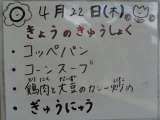 4月22日(木)。
きょうのきゅうしょく
・コッペパン
・コーンスープ
・鶏肉と大豆のカレー炒め
・ぎゅうにゅう